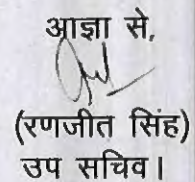 आज्ञा से,
(रणजीत सिंह)
उप सचिव।